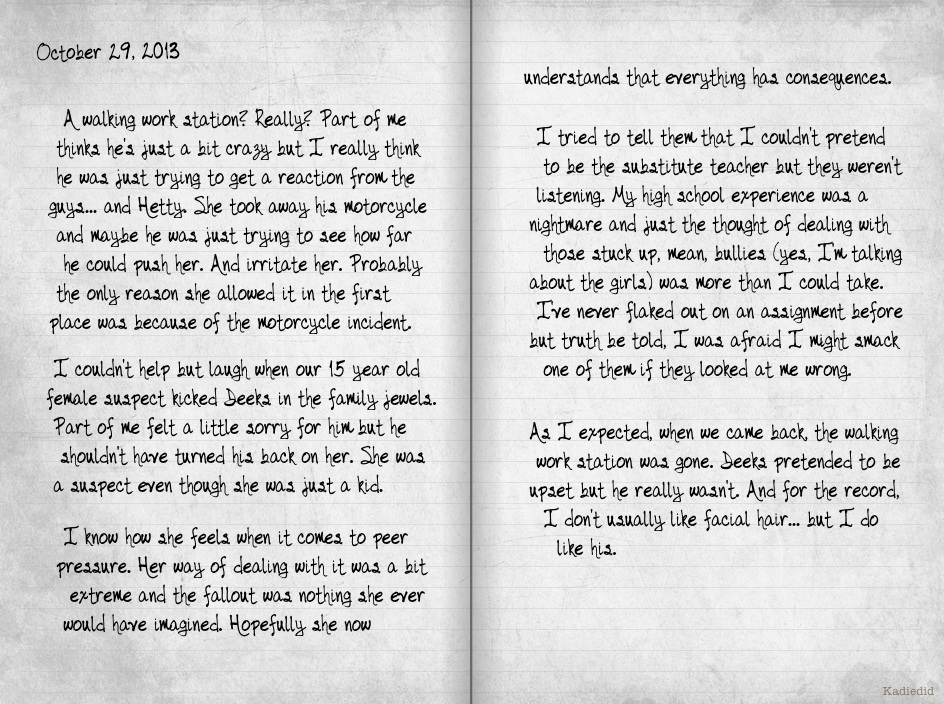 October 29, 2013
A walking work station? Really? Part of me
thinks he's just a bit crazy but I really think
he was just trying to get a reaction from the
guys... and Hetty. She took away his motorcycle
and maybe he was just trying to see how far
he could push her. And irritate her. Probably
the only reason she allowed it in the first
place was because of the motorcycle incident.
I couldn't help but laugh when our 15 year old
female suspect kicked Deeks in the family jewels.
Part of me felt a little sorry for him but he
shouldn't have turned his back on her. She was
a suspect even though she was just a kid.
I know how she feels when it comes to peer
pressure. Her way of dealing with it was a bit
extreme and the fallout was nothing she ever
would have imagined. Hopefully she now
understands that everything has consequences.
I tried to tell them that I couldn't pretend
to be the substitute teacher but they weren't
listening. My high school experience was a
nightmare and just the thought of dealing with
those stuck up, mean, bullies (yes, I'm talking
about the girls) was more than I could take.
I've never flaked out on an assignment before
but truth be told, I was afraid I might smack
one of them if they looked at me wrong.
As I expected, when we came back, the walking
work station was gone. Deeks pretended to be
upset but he really wasn't. And for the record,
I don't usually like facial hair... but I do
like his.
Kadiedid